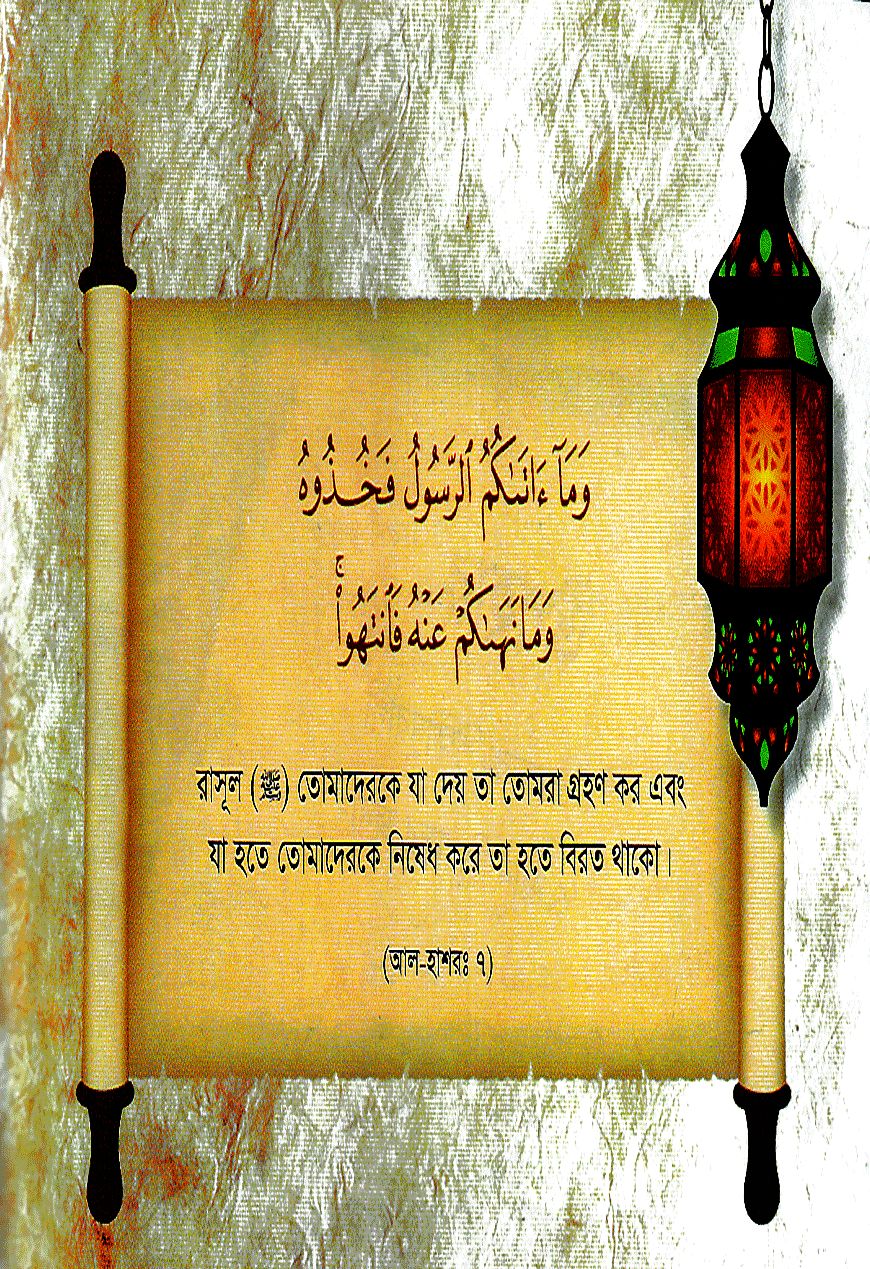 وَمَآ ءَاتَىٰكُمُ ٱلرَّسُولُ فَخُذُوهُ
وَمَا نَهَىٰكُمْ عَنْهُ فَٱنتَهُوا۟ ۚ
রাসূল (ﷺ) তোমাদেরকে যা দেয় তা তোমরা গ্রহণ কর এবং
যা হতে তোমাদেরকে নিষেধ করে তা হতে বিরত থাকো।
(আল-হাশরঃ ৭)